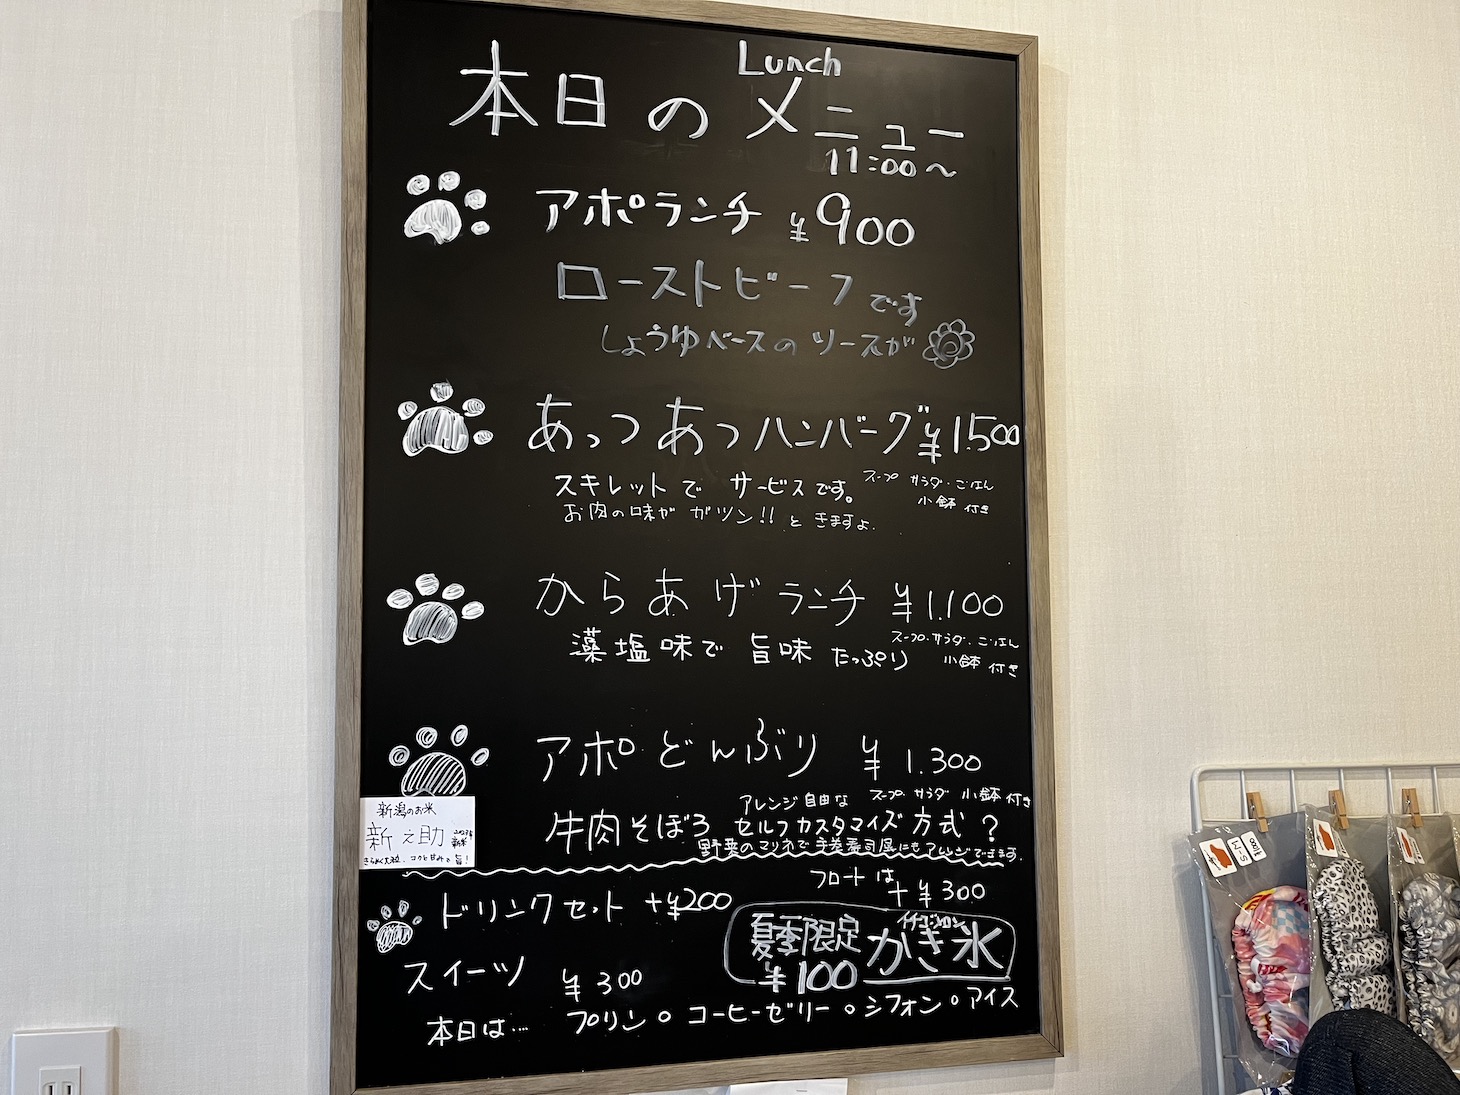 Lunch
本日のメニュー
11:00～
アポランチ ¥900
ローストビーフです
しょうゆベースのソースが
あっつあつハンバーグ ¥1.500
スキレットで サービスです。
スープ サラダ・ごはん
小鉢 付き
お肉の味が ガツン!! と きますよ.
からあげランチ ¥1.100
藻塩味で 旨味 たっぷり
スープ・サラダ・ごはん
小鉢 付き
アポどんぶり ¥1.300
アレンジ自由な
スープ サラダ 小鉢 付き
牛肉そぼろ セルフカスタマイズ方式?
野菜のマリネで手巻寿司風にもアレンジできます.
新潟のお米
新之助
新米
ドリンクセット +¥200
フロートは
+¥300
夏季限定
¥100
かき氷
スイーツ ¥300
本日は… プリン。コーヒーゼリー。シフォン。アイス
100
M-S